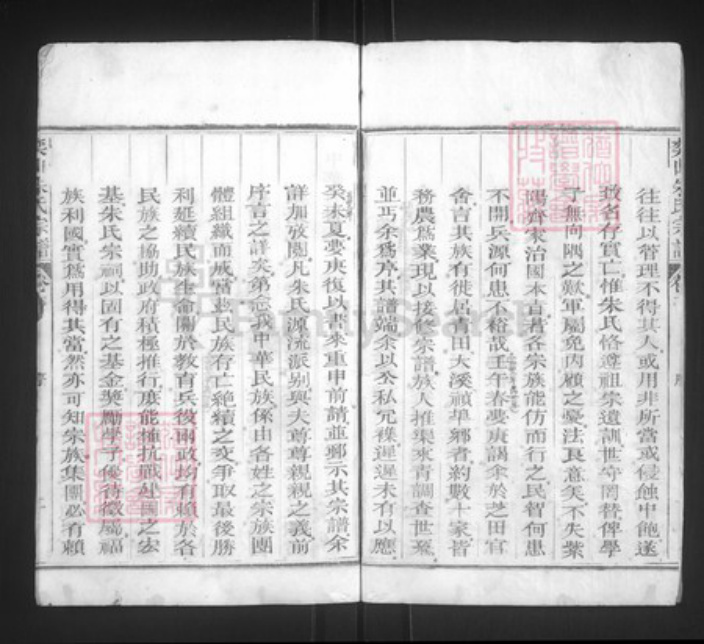 往往以管理不得其人或用非所當或侵蝕中飽遂
致名存實亡惟朱氏恪遵祖宗遺訓世守罔替俾學
子無向隅之歎軍屬免內顧之憂法良意美不失紫
陽齊家治國本旨若各宗族能仿而行之民智何患
不開兵源何患不裕哉壬午春夢庚謁余於芝田官
舍言其族有徙居青田大溪禎埠鄉者約數十家皆
務農為業現以接修宗譜族人推渠來青調查世系
並丐余為序其譜端余以公私冗襍遲遲未有以應
癸未夏夢庚復以書來重申前請並郵示其宗譜余
詳加攷閱凡朱氏源流派別與夫尊尊親親之義前
序言之詳矣第念我中華民族係由各姓之宗族團
體組織而成當此民族存亡絕續之交爭取最後勝
利延續民族生命關於教育兵役兩政均有賴於各
民族之協助政府積極推行庶能擔抗戰建國之宏
基朱氏宗祠以固有之基金獎勵學子優待徵屬福
族利國實為用得其當然亦可知宗族集團必有賴
朱氏宗譜
FamilySearch